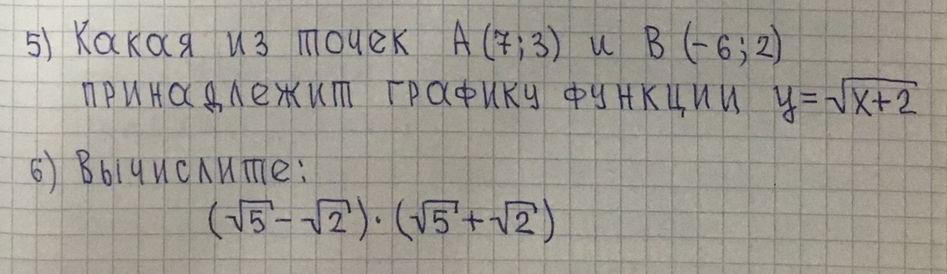 5) Какая из точек A(7;3) и B(-6;2)
принадлежит графику функции y=√x+2
6) Вычислите:
(√5-√2)·(√5+√2)